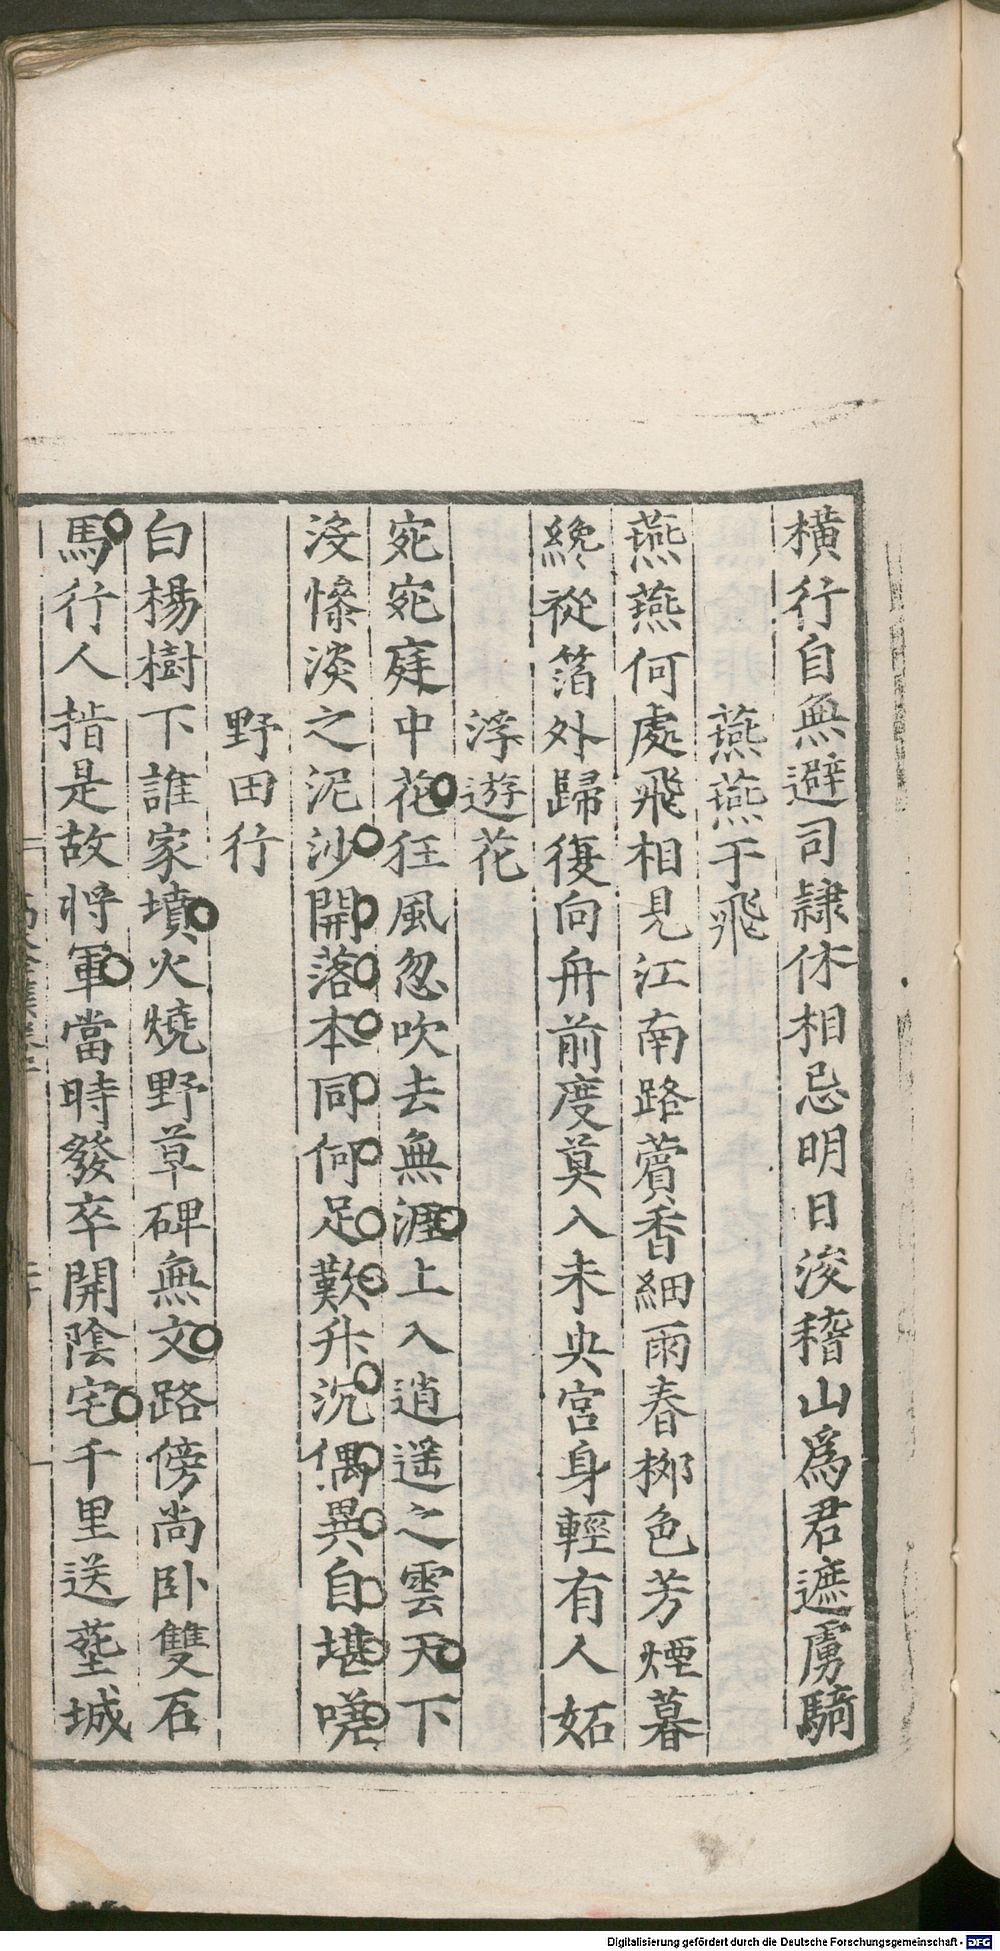 橫行自無避司隷休相忌明日浚稽山爲君遮虜騎
燕燕于飛
燕燕何處飛相見江南路薲香細雨春柳色芳煙暮
纔從箔外歸復向舟前度莫入未央宮身輕有人妬
浮遊花
宛宛庭中花狂風忽吹去無涯上入逍遥之雲天下
沒慘淡之泥沙開落本同何足歎升沉偶異自堪嗟
野田行
白楊樹下誰家墳火燒野草碑無文路傍尚卧雙石
馬行人指是故將軍當時發卒開陰宅千里送塟城
Digitalisierung gefördert durch die Deutsche Forschungsgemeinschaft - DFG